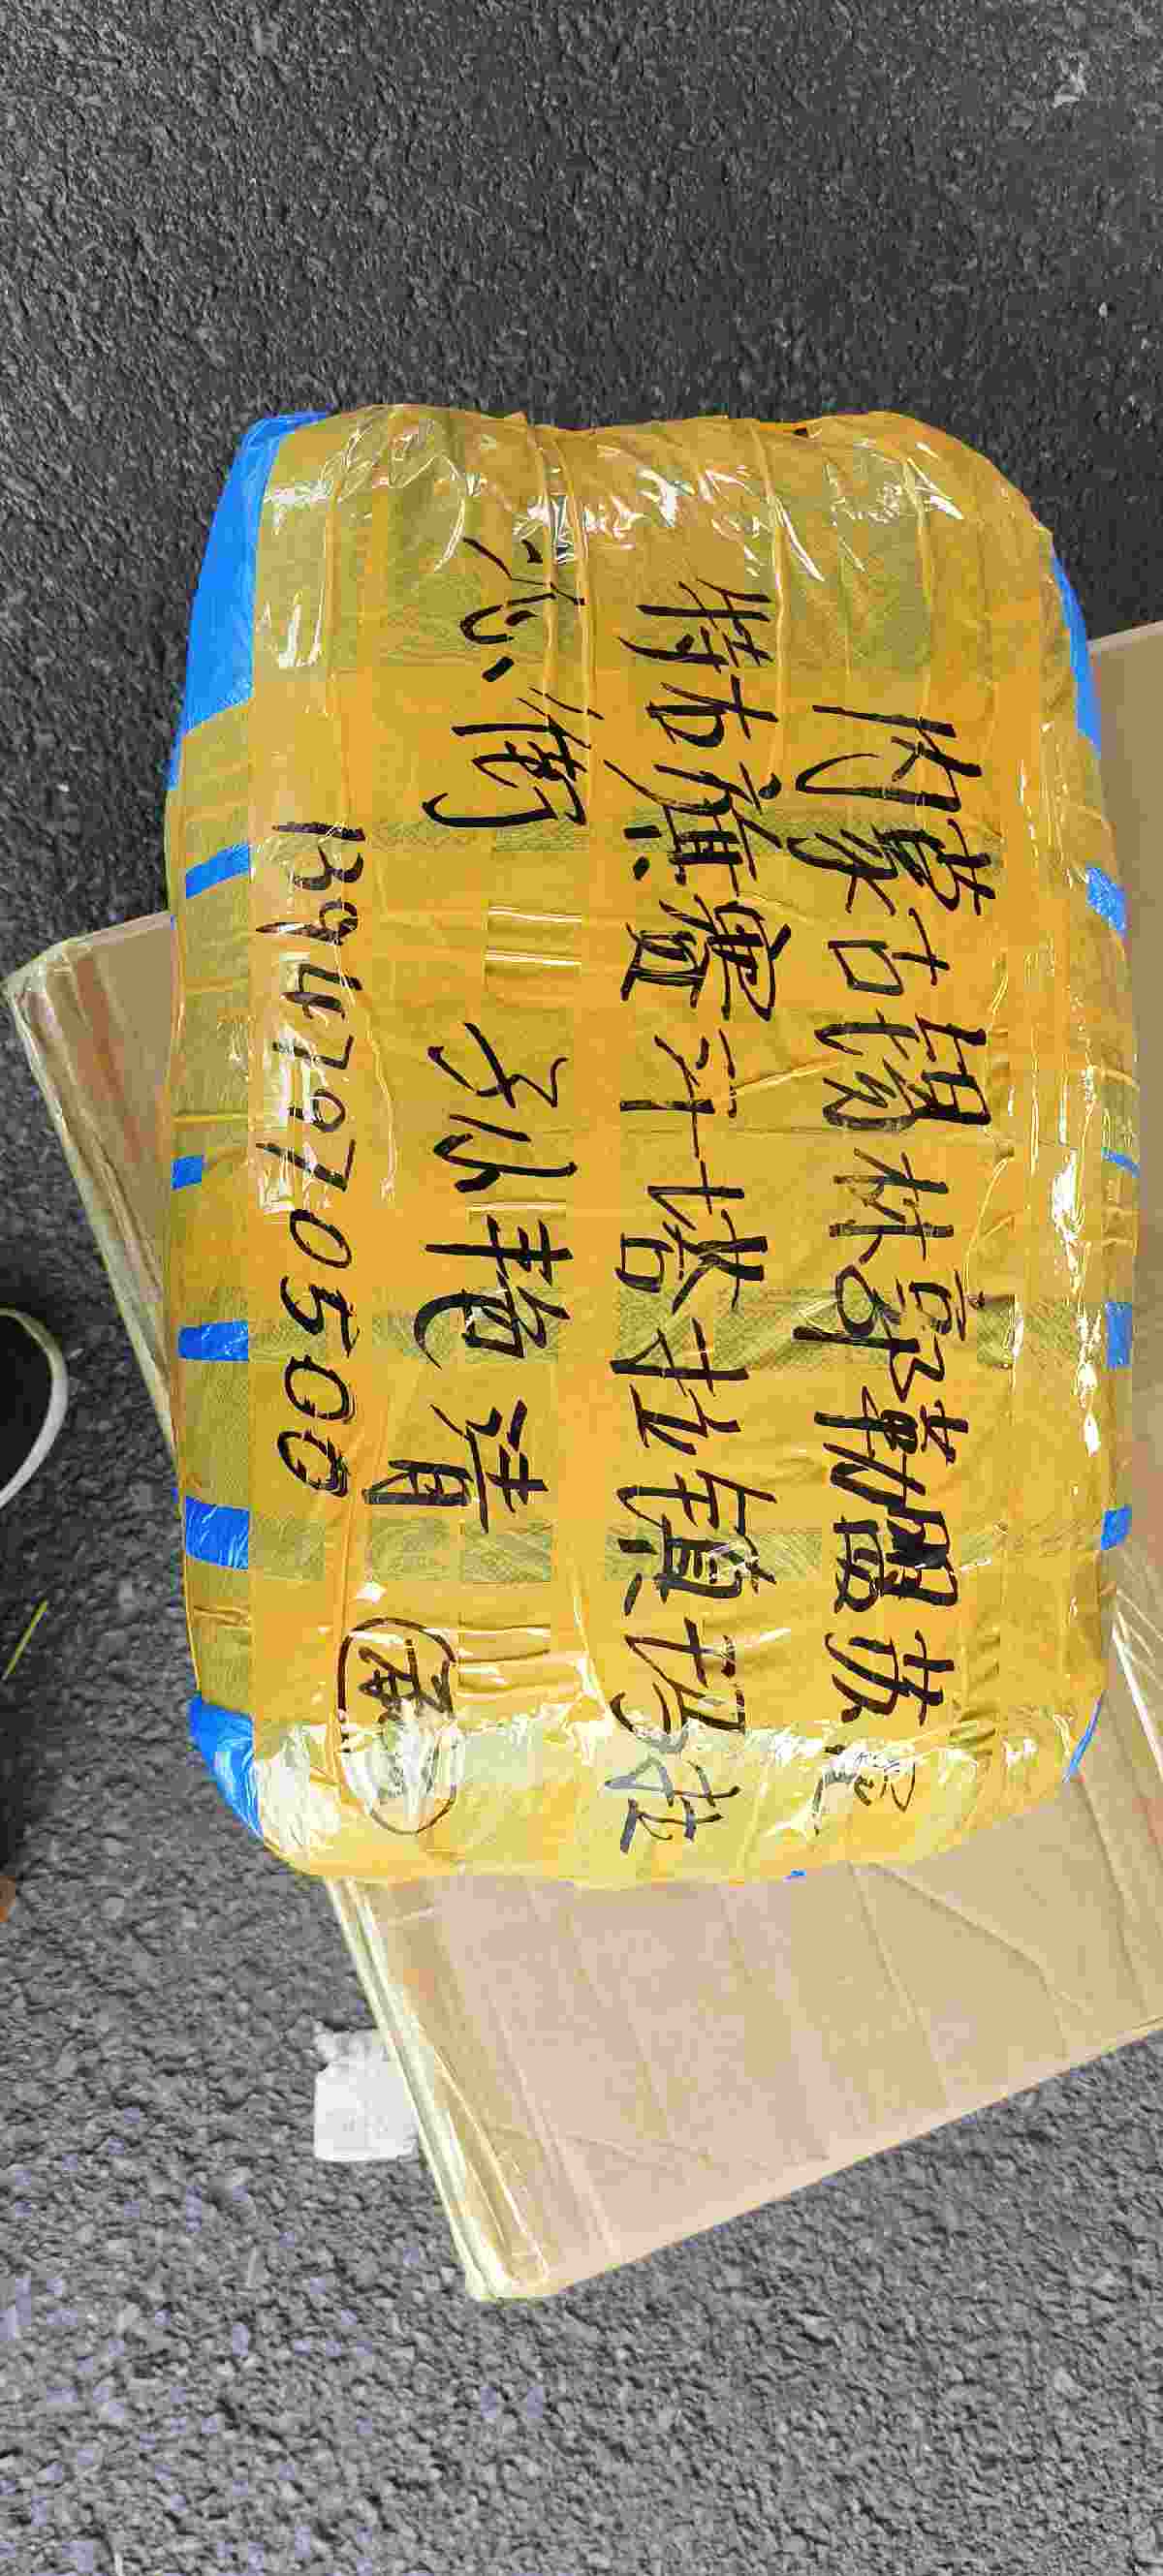 内蒙古锡林郭勒盟苏尼
特右旗赛汗塔拉镇
街 孙艳青
13947970500